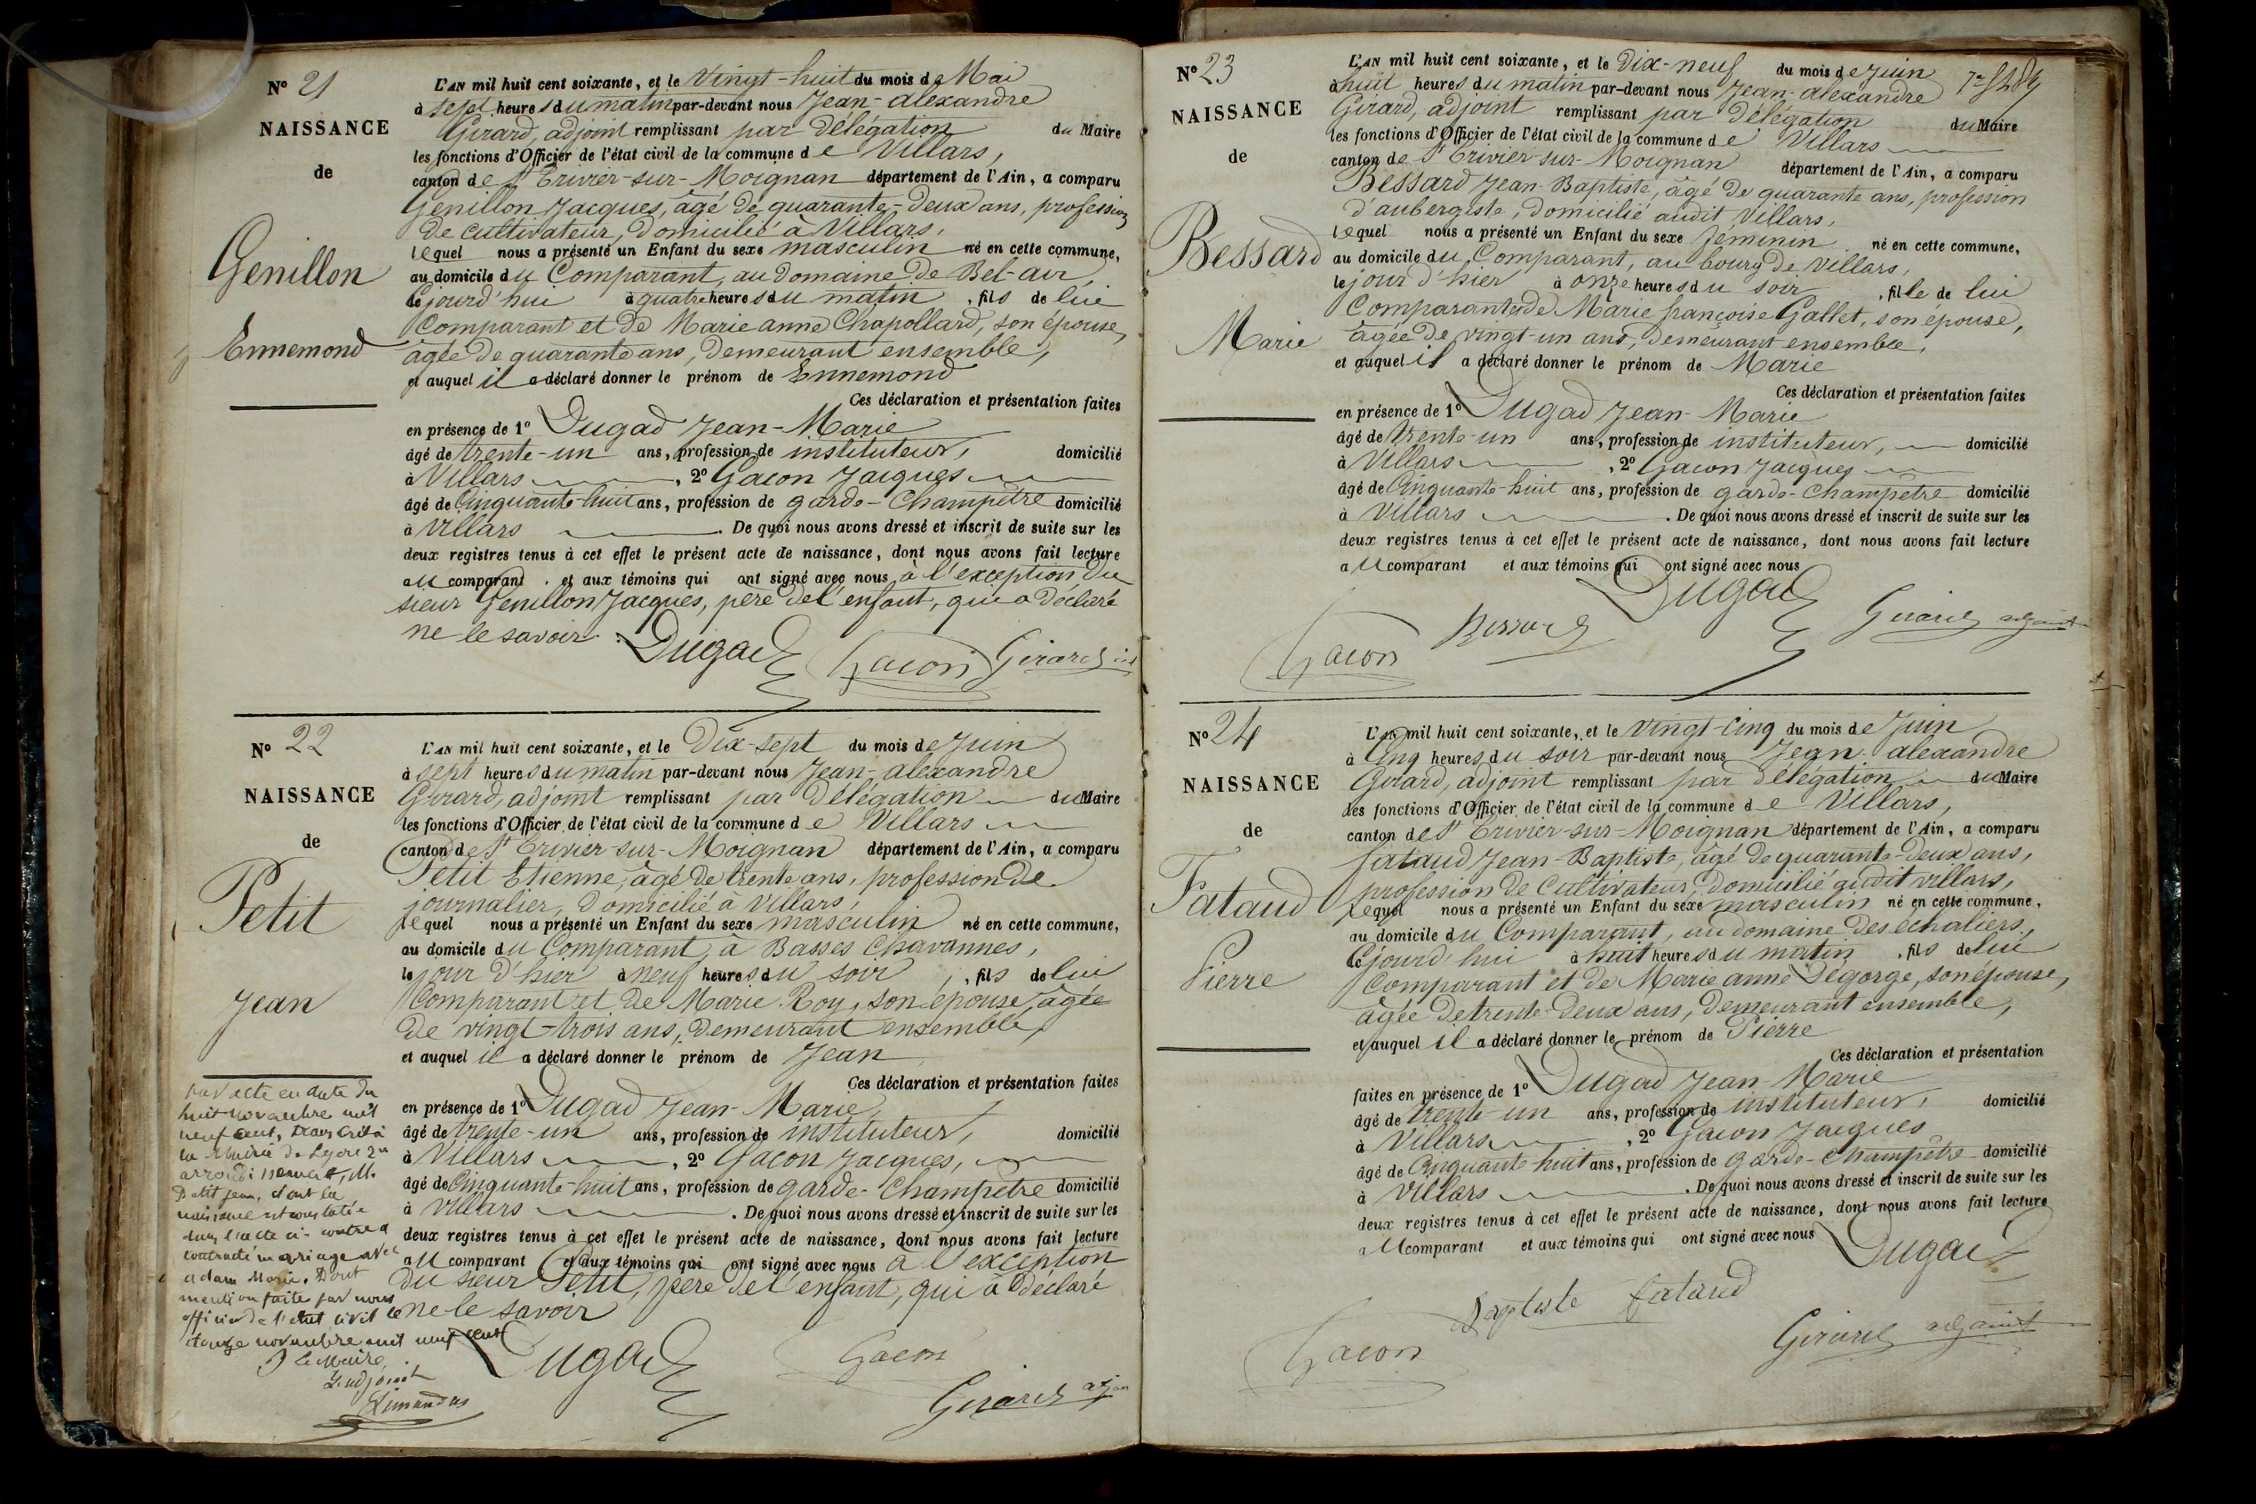 N° 21
NAISSANCE
de
Genillon
Ennemond
L'AN mil huit cent soixante, et le Vingt-huit du mois de Mai
à sept heures du matin par-devant nous Jean-alexandre
Girard, adjoint remplissant par délégation du Maire
les fonctions d'Officier de l'état civil de la commune de Villars,
canton de St Trivier-sur-Moignan département de l'Ain, a comparu
Genillon Jacques, âgé de quarante-deux ans, profession
de cultivateur, domicilié à Villars,
lequel nous a présenté un Enfant du sexe masculin né en cette commune,
au domicile du Comparant, au domaine de Bel-air,
cejourd'hui à quatre heures du matin, fils de lui
Comparant et de Marie anne Chapollard, son épouse,
âgée de quarante ans, demeurant ensemble,
et auquel il a déclaré donner le prénom de Ennemond
Ces déclaration et présentation faites
en présence de 1° Dugad Jean-Marie
âgé de trente-un ans, profession de instituteur, domicilié
à Villars, 2° Gacon Jacques
âgé de Cinquante-huit ans, profession de garde-Champêtre domicilié
à Villars. De quoi nous avons dressé et inscrit de suite sur les
deux registres tenus à cet effet le présent acte de naissance, dont nous avons fait lecture
au comparant. et aux témoins qui ont signé avec nous, à l'exception du
sieur Genillon Jacques, père de l'enfant, qui a déclaré
ne le savoir.
Dugad Gacon Girard
N° 22
NAISSANCE
de
Petit
Jean
L'AN mil huit cent soixante, et le Dix-sept du mois de Juin
à sept heures du matin par-devant nous Jean-alexandre
Girard, adjoint remplissant par délégation du Maire
les fonctions d'Officier de l'état civil de la commune de Villars
canton de St Trivier-sur-Moignan département de l'Ain, a comparu
Petit Etienne, âgé de trente ans, profession de
journalier, domicilié à Villars,
lequel nous a présenté un Enfant du sexe masculin né en cette commune,
au domicile du Comparant, à Basses Chavannes,
le jour d'hier à neuf heures du soir, fils de lui
Comparant et de Marie Roy, son épouse, âgée
de vingt-trois ans, demeurant ensemble,
et auquel il a déclaré donner le prénom de Jean
Ces déclaration et présentation faites
en présence de 1° Dugad Jean-Marie,
âgé de trente-un ans, profession de instituteur, domicilié
à Villars, 2° Gacon Jacques,
âgé de Cinquante-huit ans, profession de garde-Champêtre domicilié
à Villars. De quoi nous avons dressé et inscrit de suite sur les
deux registres tenus à cet effet le présent acte de naissance, dont nous avons fait lecture
au comparant et aux témoins qui ont signé avec nous à l'exception
du sieur Petit, père de l'enfant, qui a déclaré
ne le savoir
Dugad Gacon
Girard
Par acte en date du
huit novembre mil
neuf cent, transcrit à
la mairie de Lyon 2e
arrondissement, M.
Petit Jean, dont la
naissance est constatée
dans l'acte ci-contre a
contracté mariage avec
adam Marie. Dont
mention faite par nous
officier de l'état civil le
douze novembre mil neuf cent
P. le Maire,
L'adjoint
N° 23
NAISSANCE
de
Bessard
Marie
L'AN mil huit cent soixante, et le Dix-neuf du mois de Juin
à huit heures du matin par-devant nous Jean-alexandre
Girard, adjoint remplissant par délégation du Maire
les fonctions d'Officier de l'état civil de la commune de Villars
canton de St Trivier-sur-Moignan département de l'Ain, a comparu
Bessard Jean-Baptiste, âgé de quarante ans, profession
d'aubergiste, domicilié audit Villars,
lequel nous a présenté un Enfant du sexe féminin né en cette commune,
au domicile du Comparant, au bourg de Villars,
le jour d'hier à onze heures du soir, fille de lui
Comparant et de Marie françoise Gallet, son épouse,
âgée de vingt-un ans, demeurant ensemble,
et auquel il a déclaré donner le prénom de Marie
Ces déclaration et présentation faites
en présence de 1° Dugad Jean-Marie
âgé de trente-un ans, profession de instituteur, domicilié
à Villars, 2° Gacon Jacques
âgé de Cinquante-huit ans, profession de garde-Champêtre domicilié
à Villars. De quoi nous avons dressé et inscrit de suite sur les
deux registres tenus à cet effet le présent acte de naissance, dont nous avons fait lecture
au comparant et aux témoins qui ont signé avec nous
Dugad
Gacon Bessard Girard adjoint
N° 24
NAISSANCE
de
Fataud
Pierre
L'AN mil huit cent soixante, et le Vingt-Cinq du mois de Juin
à Cinq heures du soir par-devant nous Jean-alexandre
Girard, adjoint remplissant par délégation du Maire
les fonctions d'Officier de l'état civil de la commune de Villars,
canton de St Trivier-sur-Moignan département de l'Ain, a comparu
fataud Jean-Baptiste, âgé de quarante-deux ans,
profession de Cultivateur, domicilié audit villars,
lequel nous a présenté un Enfant du sexe masculin né en cette commune,
au domicile du Comparant, au domaine des échaliers,
cejourd'hui à huit heures du matin, fils de lui
Comparant et de Marie anne Degorge, son épouse,
âgée de trente-deux ans, demeurant ensemble,
et auquel il a déclaré donner le prénom de Pierre
Ces déclaration et présentation
faites en présence de 1° Dugad Jean-Marie
âgé de trente-un ans, profession de instituteur, domicilié
à Villars, 2° Gacon Jacques
âgé de Cinquante-huit ans, profession de garde-Champêtre domicilié
à Villars. De quoi nous avons dressé et inscrit de suite sur les
deux registres tenus à cet effet le présent acte de naissance, dont nous avons fait lecture
au comparant et aux témoins qui ont signé avec nous
Dugad
Baptiste fataud
Gacon Girard adjoint